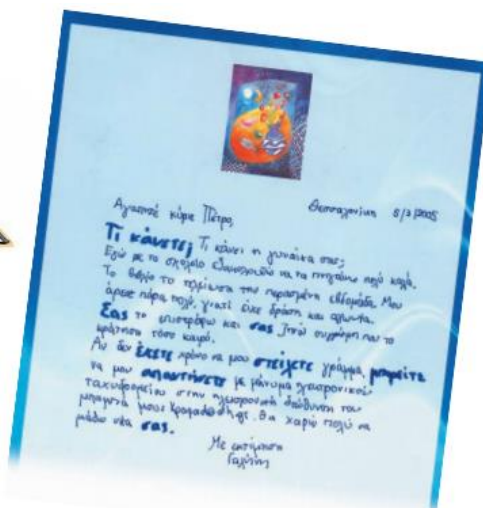 Θεσσαλονίκη 5/3/2005
Αγαπητέ κύριε Πέτρο,
Τι κάνετε; Τι κάνει η γυναίκα σας;
Εγώ με το σχολείο εξακολουθώ να τα πηγαίνω πολύ καλά.
Το βιβλίο το τελείωσα την περασμένη εβδομάδα. Μου
άρεσε πάρα πολύ, γιατί είχε δράση και αγωνία.
Σας το επιστρέφω και σας ζητώ συγγνώμη που το
κράτησα τόσο καιρό.
Αν δεν έχετε χρόνο να μου στείλετε γράμμα, μπορείτε
να μου απαντήσετε με μήνυμα ηλεκτρονικού
ταχυδρομείου στην ηλεκτρονική διεύθυνση του
μπαμπά μου: Θα χαρώ πολύ να
μάθω νέα σας.
Με εκτίμηση
Γαλήνη